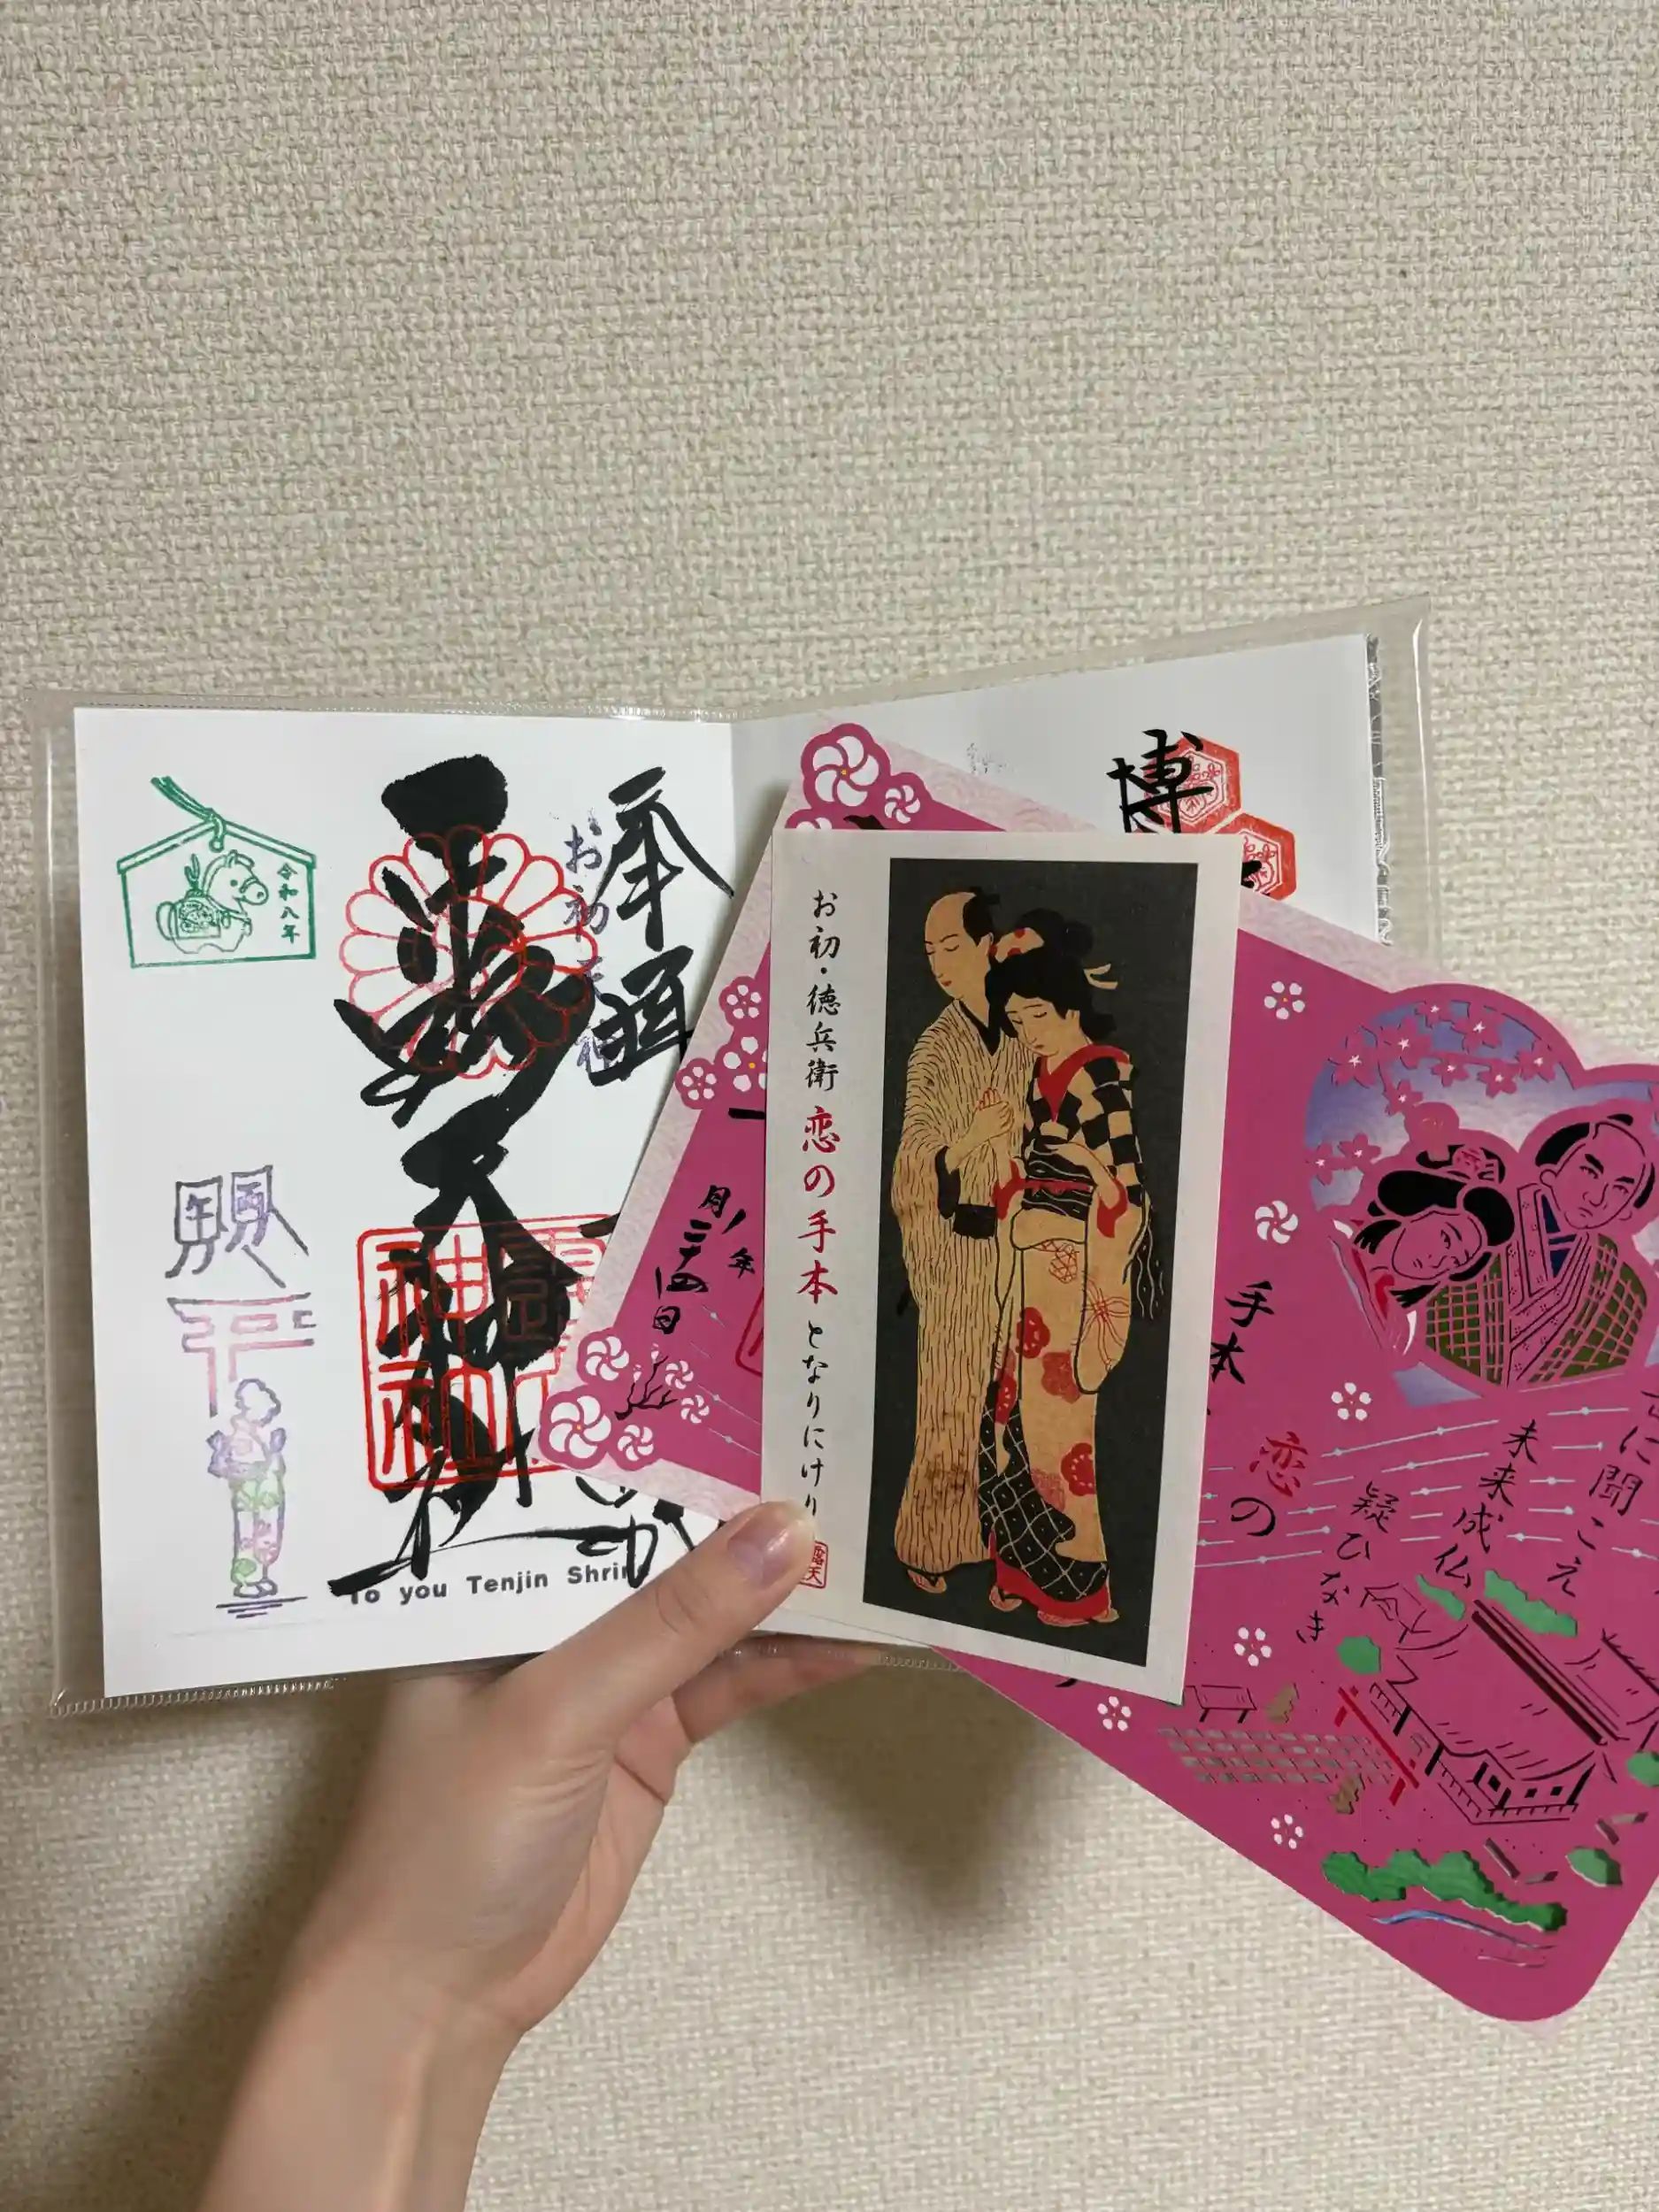 令和八年
奉拝
お初天神
露天神社
神社
To you Tenjin Shrin
博
お初・徳兵衛 恋の手本 となりにけり
露天
年
月二十四日
恋の
手本
に聞こえ
未来成仏
疑ひなき